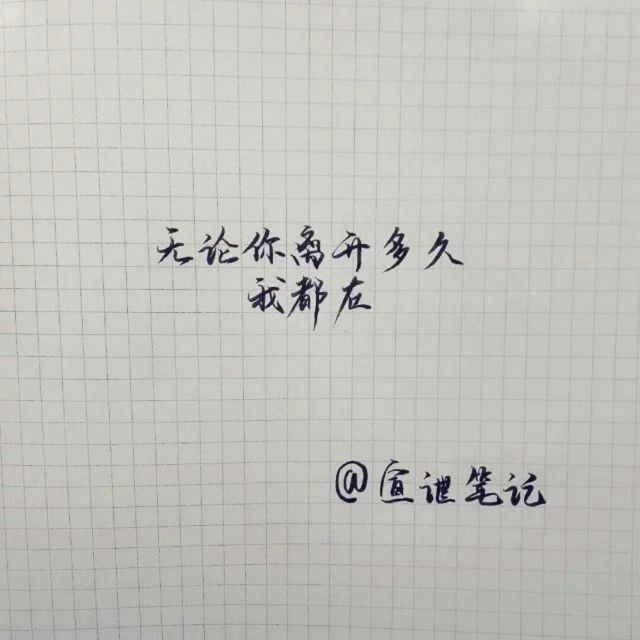 无论你离开多久
我都在
@宣泄笔记